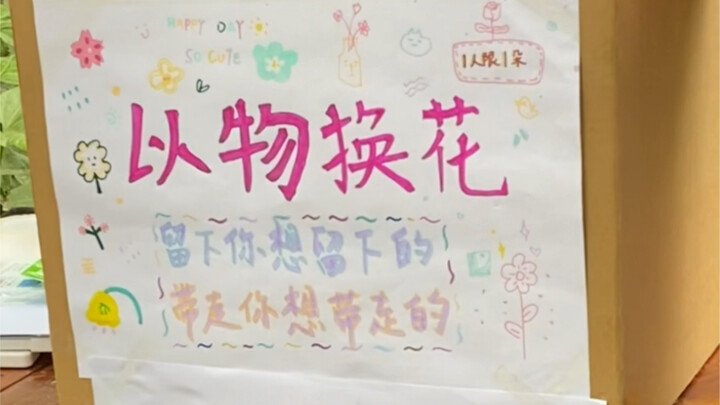 HAPPY DAY
SO CUTE
1人限1朵
以物换花
留下你想留下的
带走你想带走的